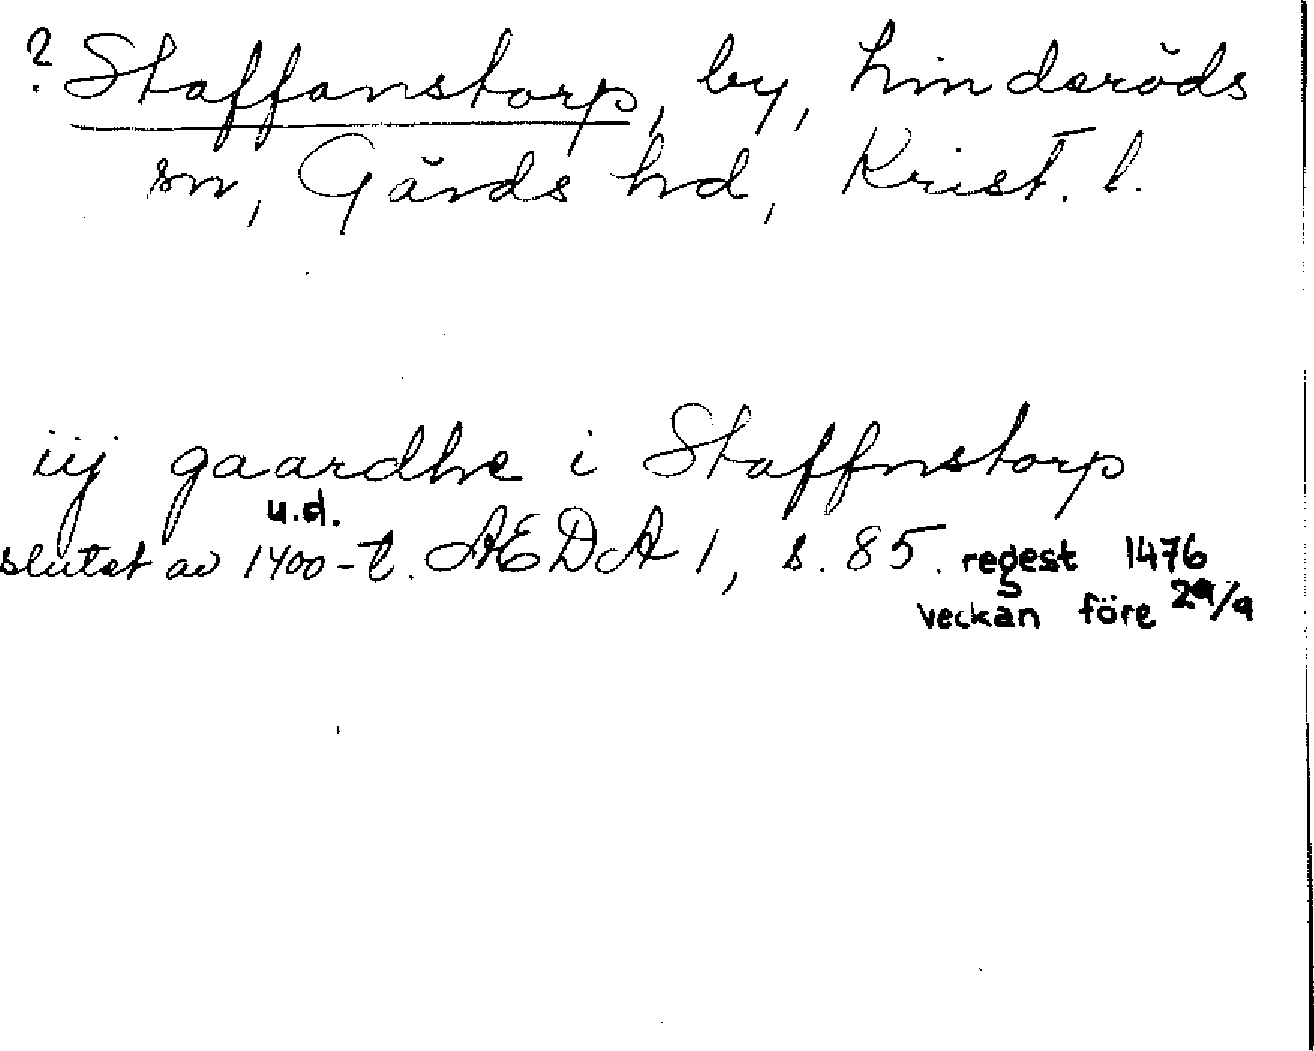 ? Staffanstorp, by, Linderöds
sn, Gärds hd, Krist. l.
iij gaardhe i Staffnstorp
u.d.
slutet av 1400-t. AEDA 1, s. 85. regest 1476
veckan före 29/9